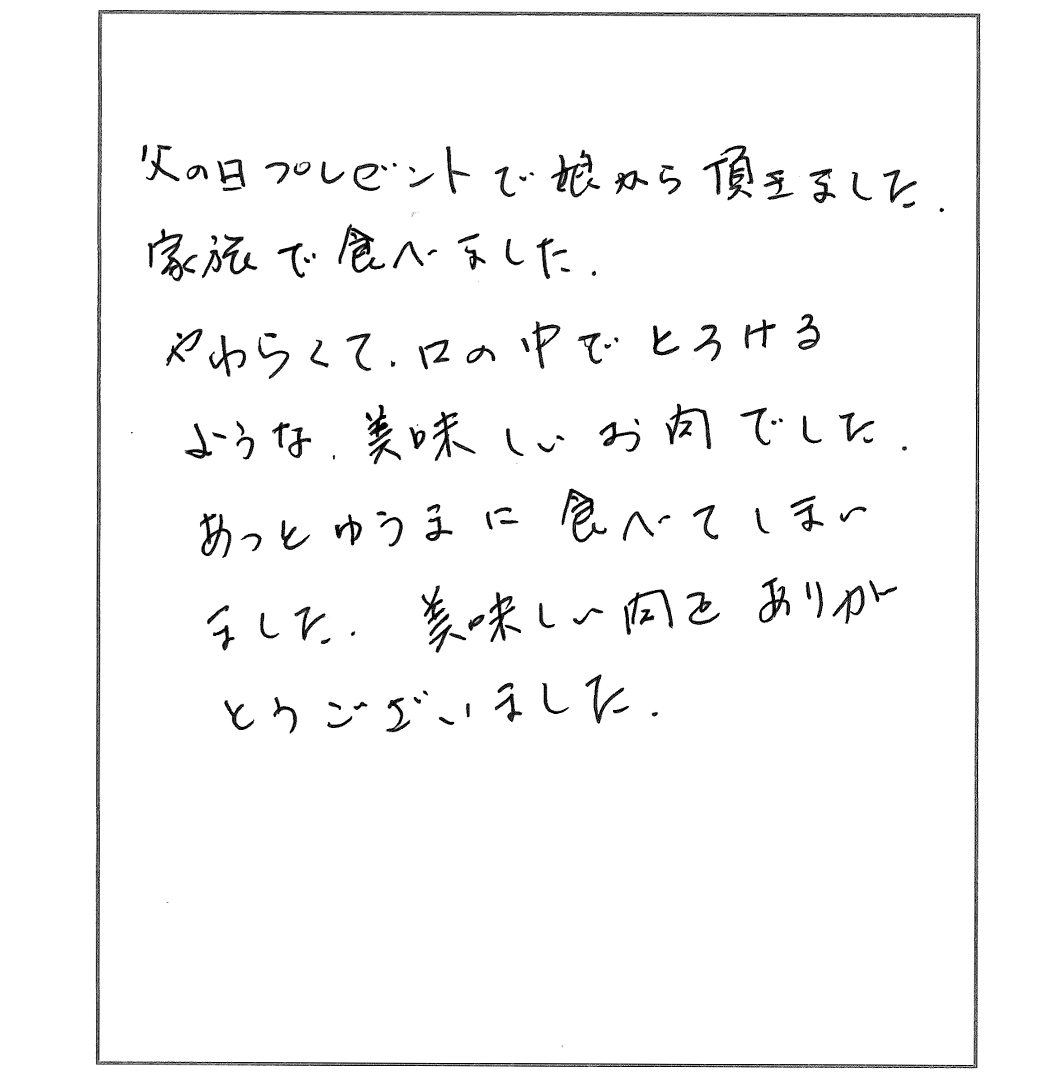 父の日プレゼントで娘から頂きました.
家族で食べました.
やわらくて.口の中でとろける
ような.美味しいお肉でした.
あっとゆうまに食べてしまい
ました.美味しい肉をありが
とうございました.